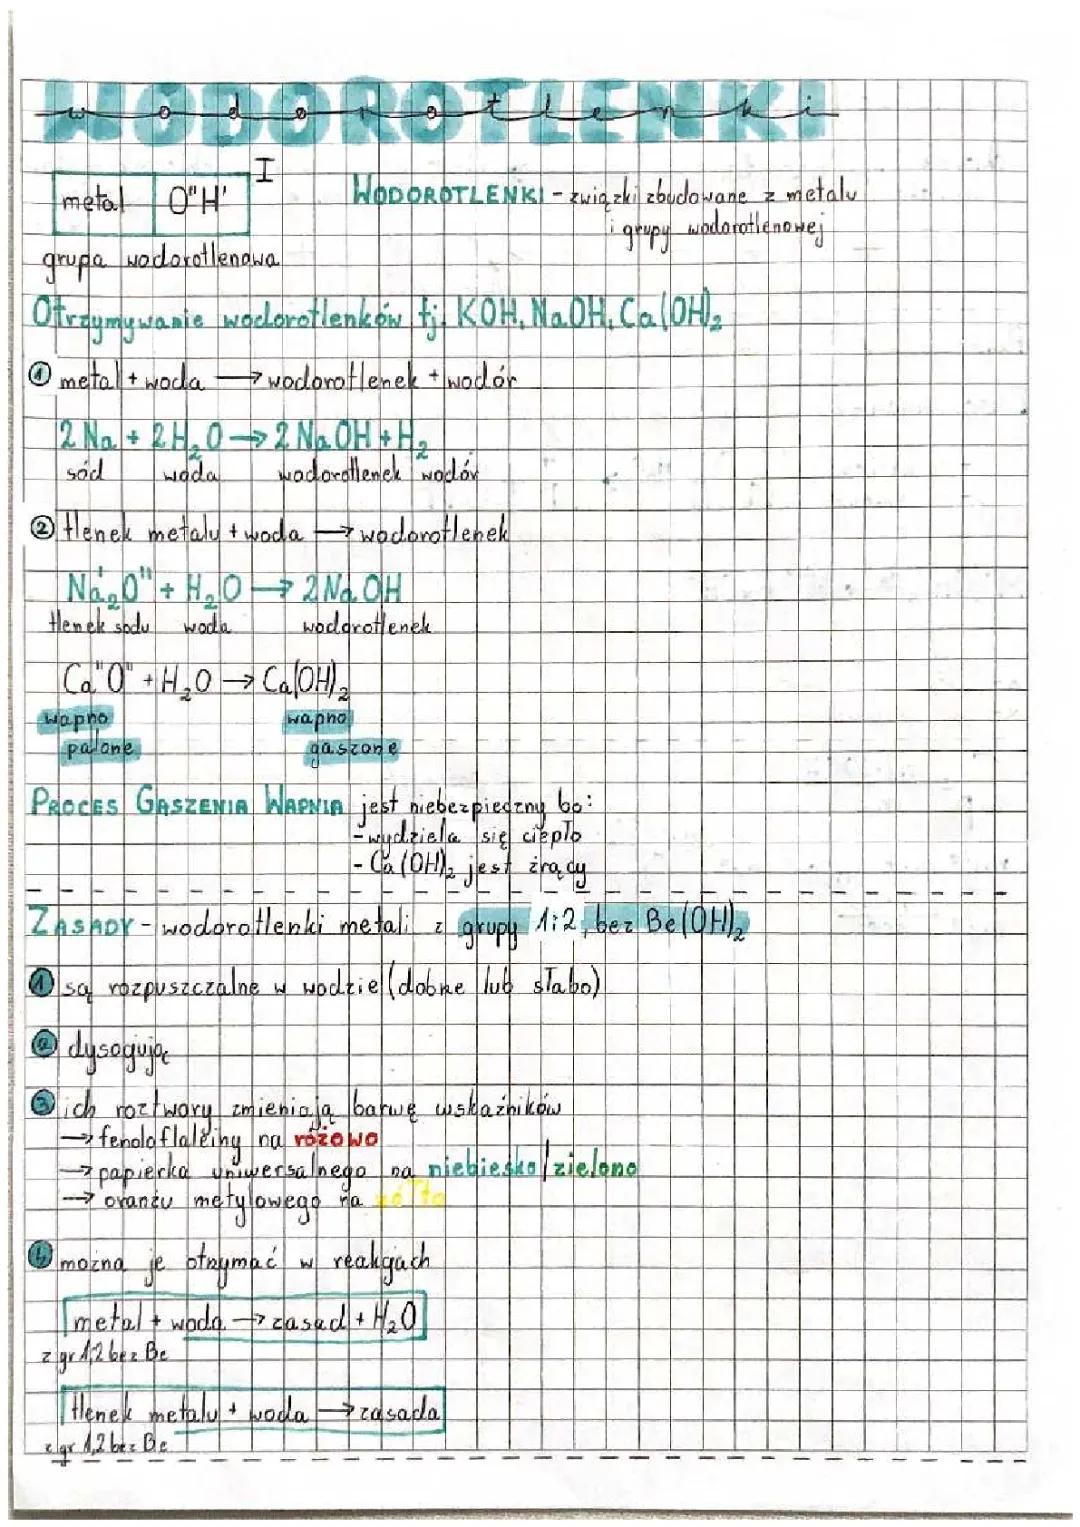 WODOROTLENKI
wodorotlenki
metal OᴵᴵHᴵ I
WODOROTLENKI - związki zbudowane z metalu
i grupy wodorotlenowej
grupa wodorotlenowa
Otrzymywanie wodorotlenków tj. KOH, NaOH, Ca(OH)₂
① metal + woda → wodorotlenek + wodór
2 Na + 2 H₂O → 2 NaOH + H₂
sód woda wodorotlenek wodór
② tlenek metalu + woda → wodorotlenek
Naᴵ₂Oᴵᴵ + H₂O → 2 NaOH
tlenek sodu woda wodorotlenek
CaᴵᴵOᴵᴵ + H₂O → Ca(OH)₂
wapno wapno
palone gaszone
PROCES GASZENIA WAPNIA jest niebezpieczny bo:
- wydziela się ciepło
- Ca(OH)₂ jest żrący
ZASADY - wodorotlenki metali z grupy 1 i 2, bez Be(OH)₂
① są rozpuszczalne w wodzie (dobrze lub słabo)
② dysocjują
③ ich roztwory zmieniają barwę wskaźników
→ fenoloftaleiny na różowo
→ papierka uniwersalnego na niebiesko/zielono
→ oranżu metylowego na żółto
④ można je otrzymać w reakcjach
metal + woda → zasad + H₂O
z gr 1,2 bez Be
tlenek metalu + woda → zasada
z gr 1,2 bez Be